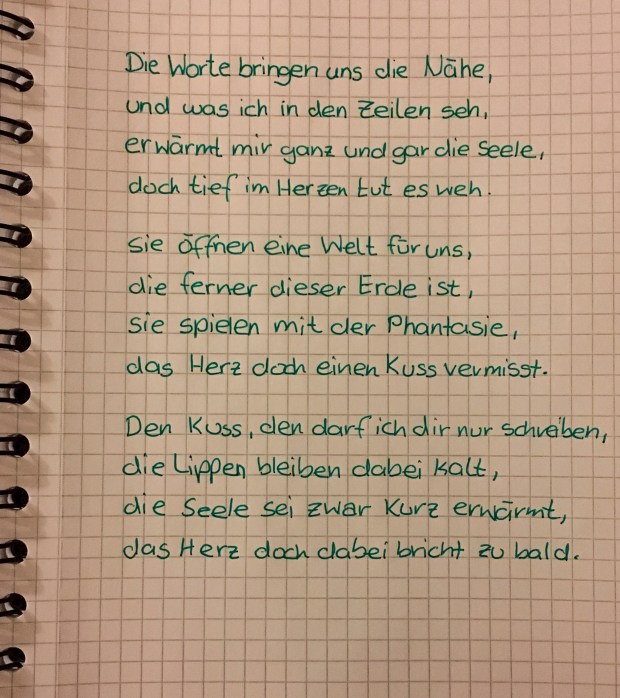 Die Worte bringen uns die Nähe,
und was ich in den Zeilen seh,
erwärmt mir ganz und gar die Seele,
doch tief im Herzen tut es weh.
Sie öffnen eine Welt für uns,
die ferner dieser Erde ist,
sie spielen mit der Phantasie,
das Herz doch einen Kuss vermisst.
Den Kuss, den darf ich dir nur schreiben,
die Lippen bleiben dabei kalt,
die Seele sei zwar kurz erwärmt,
das Herz doch dabei bricht zu bald.